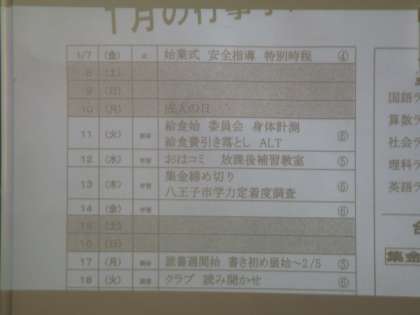 1月の行事予
1/7 (金) 始業式 安全指導 特別時程 ④
8 (土)
9 (日)
10 (月) 成人の日
11 (火) 給食始 委員会 身体計測
給食費引き落とし ALT ⑥
12 (水) おはコミ 放課後補習教室 ⑤
13 (木) 集金締め切り
八王子市学力定着度調査 ⑥
14 (金) ⑥
15 (土)
16 (日)
17 (月) 読書週間始 書き初め展始~2/5 ⑤
18 (火) クラブ 読み聞かせ ⑥
国語
算数
社会
理科
英語
集金